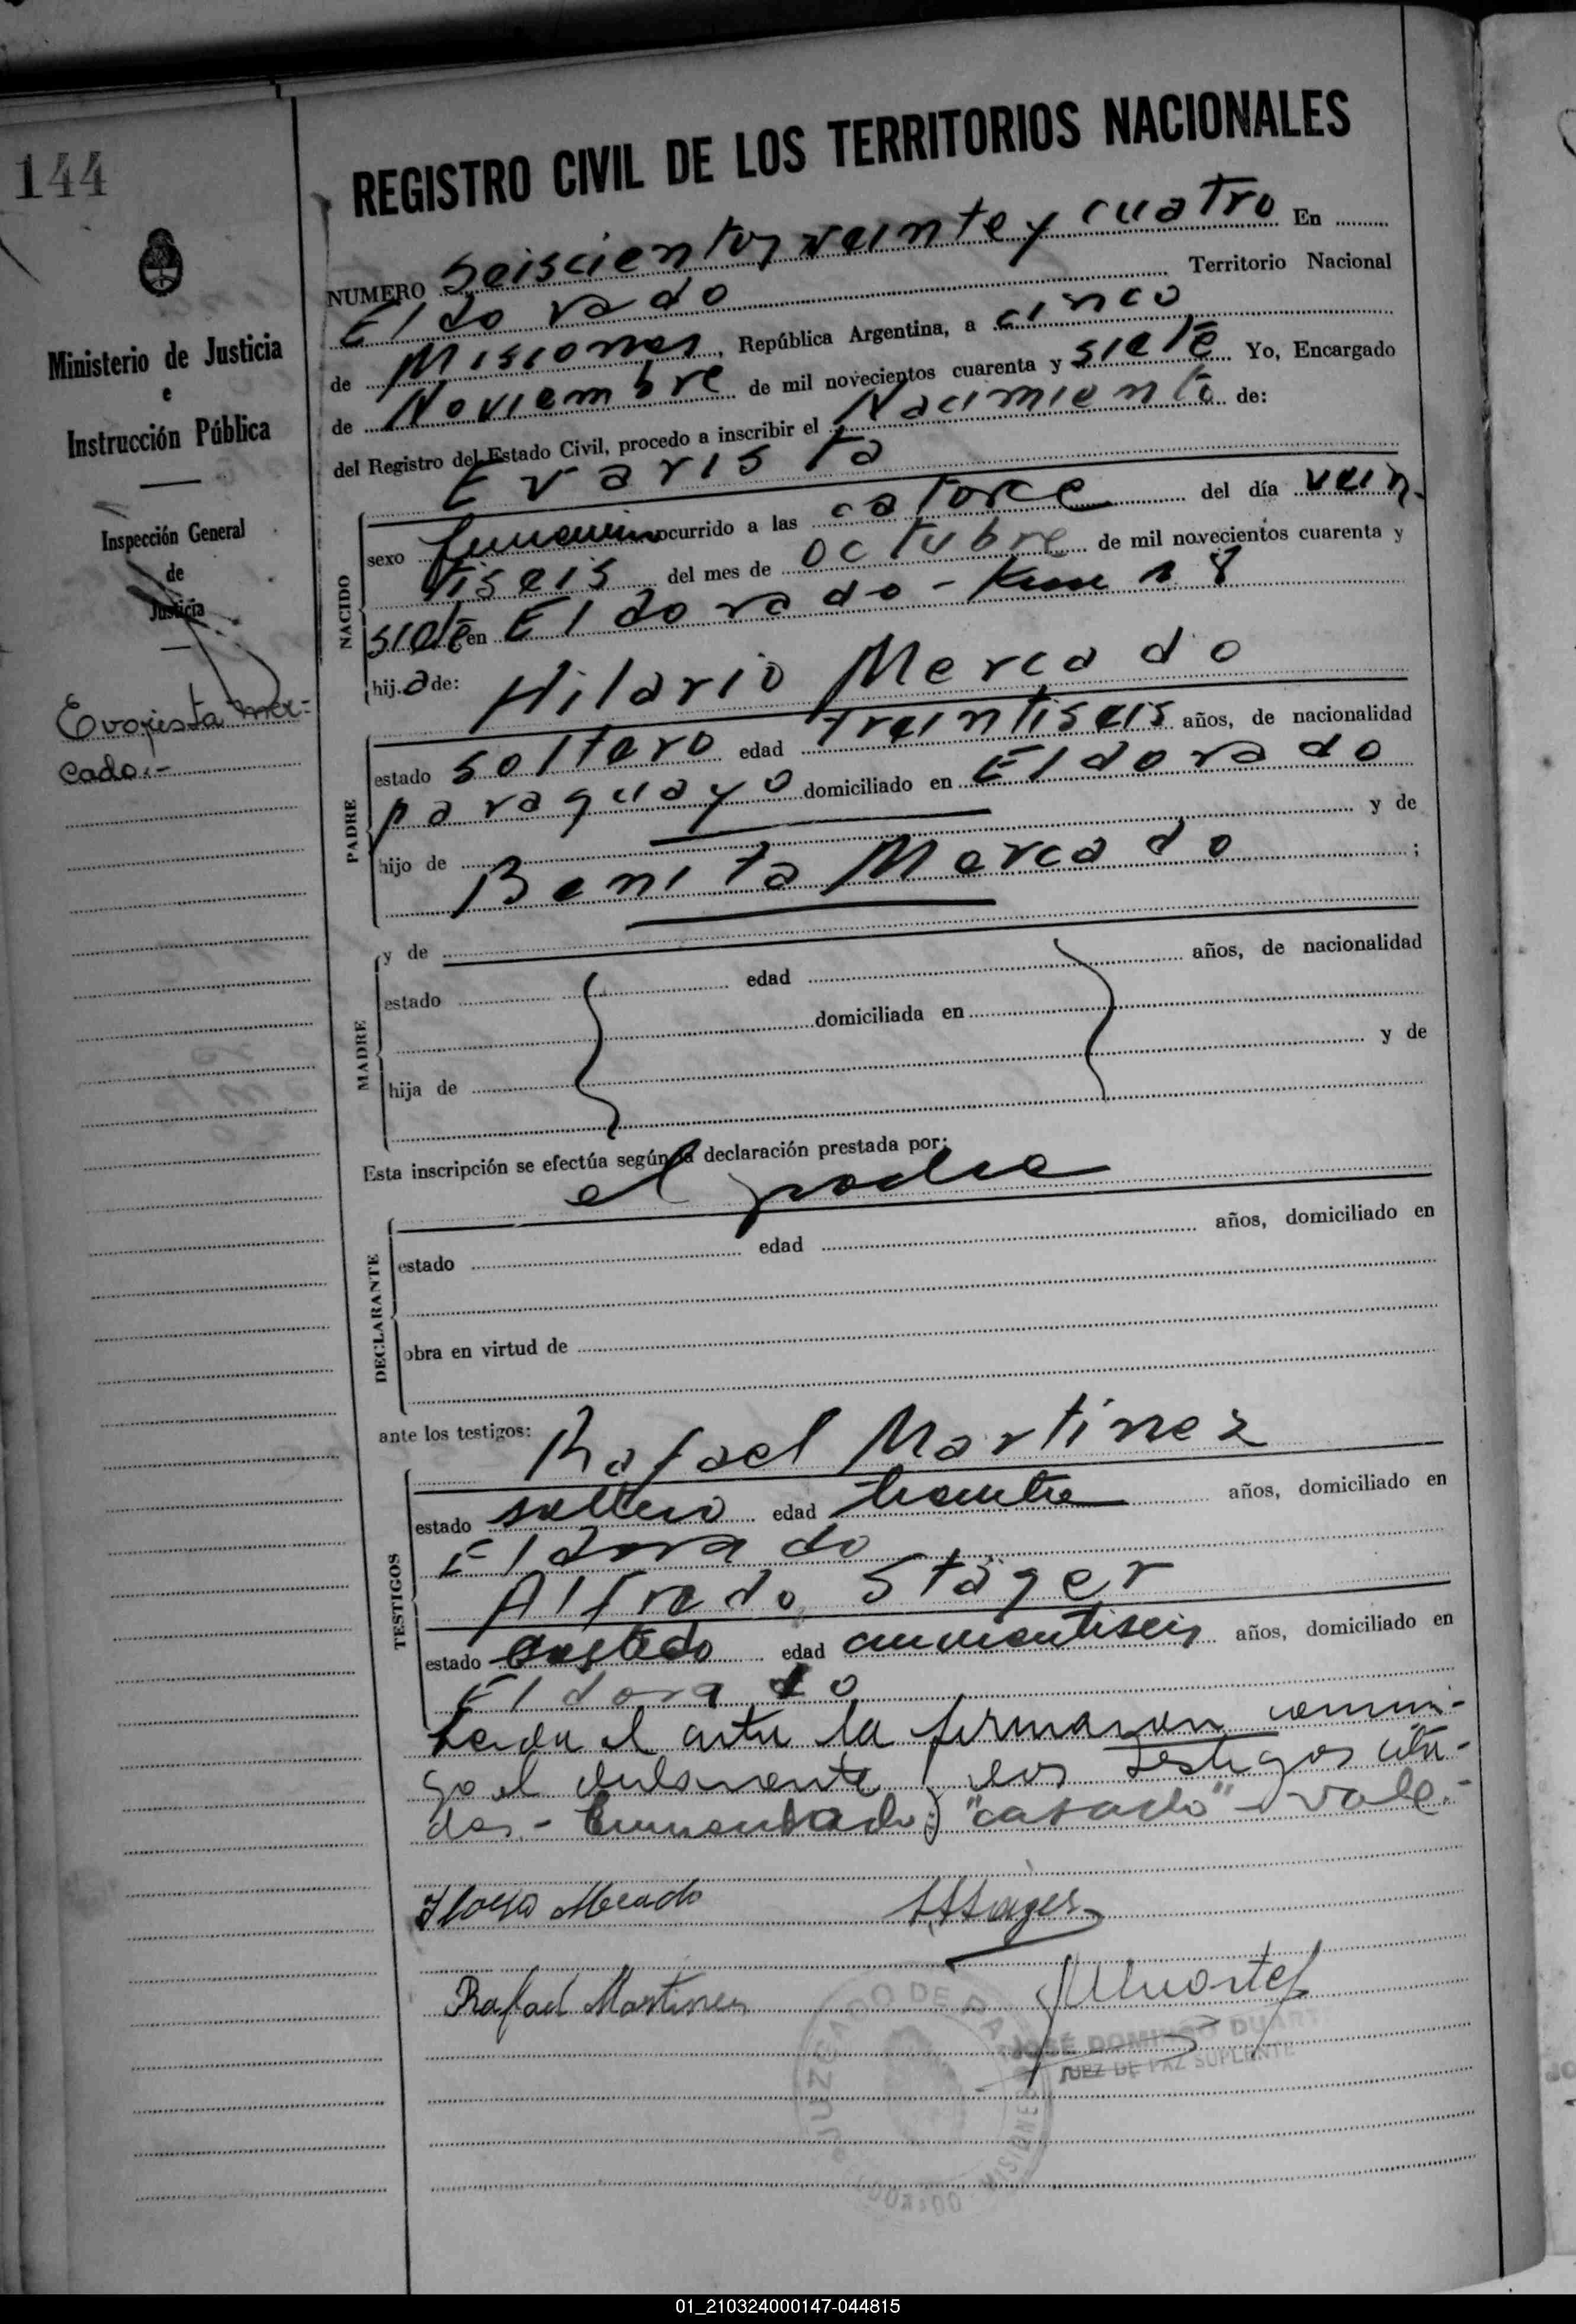 144
Ministerio de Justicia
e
Instrucción Pública
Inspección General
de
Justicia
Evarista Mer=
cado.-
REGISTRO CIVIL DE LOS TERRITORIOS NACIONALES
NUMERO Seiscientos veinte y cuatro En
El do rado Territorio Nacional
de Misiones, República Argentina, a cinco
de Noviembre de mil novecientos cuarenta y siete Yo, Encargado
del Registro del Estado Civil, procedo a inscribir el Nacimiento de:
Evarista
NACIDO
sexo femenino ocurrido a las catorce del día vein-
tiseis del mes de octubre de mil novecientos cuarenta y
siete en El do rado - Km 18
hij.a de: Hilario Mercado
PADRE
estado soltero edad treintiseis años, de nacionalidad
paraguayo domiciliado en El dorado
hijo de y de
Benita Mercado ;
MADRE
y de
estado edad años, de nacionalidad
domiciliada en
hija de y de
Esta inscripción se efectúa según la declaración prestada por:
el padre
DECLARANTE
estado edad años, domiciliado en
obra en virtud de
ante los testigos: Rafael Martinez
TESTIGOS
estado soltero edad treinta años, domiciliado en
El dorado
Alfredo Stäger
estado casado edad cincuentiseis años, domiciliado en
El dorado
Leida el acta la firmaron conmi-
go el declarante y los testigos cita-
dos.- Enmendado: "casado" - vale.-
Ilario Mercado
AStager
Rafael Martinez
JUZGADO DE PAZ
MISIONES
JOSÉ DOMINGO DUARTE
JUEZ DE PAZ SUPLENTE
01_210324000147-044815